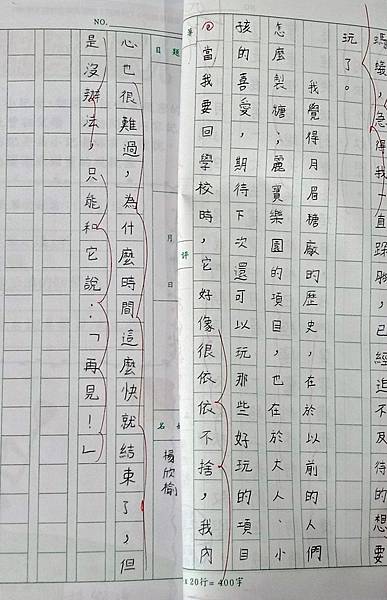 螞蟻，急得我一直跺腳，已經迫不及待的想要
玩了。
我覺得月眉糖廠的歷史，在於以前的人們
怎麼製糖；麗寶樂園的項目，也在於大人、小
孩的喜愛，期待下次還可以玩那些好玩的項目
當我要回學校時，它好像很依依不捨，我內
評
x 20行= 400字
NO.
題目
月
日
楊欣愉
心也很難過，為什麼時間這麼快就結束了，但
是沒辦法，只能和它說：「再見！」